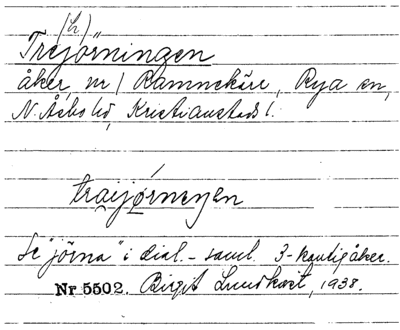 (h)
Trejörningen
åker, nr / Ramnekärr, Rya sn,
N. Åsbo hd, Kristianstads l.
traijørneŋen
Se "jörna" i dial.-saml. 3-kantig åker.
Nr 5502. Birgit Lundkvist, 1938.